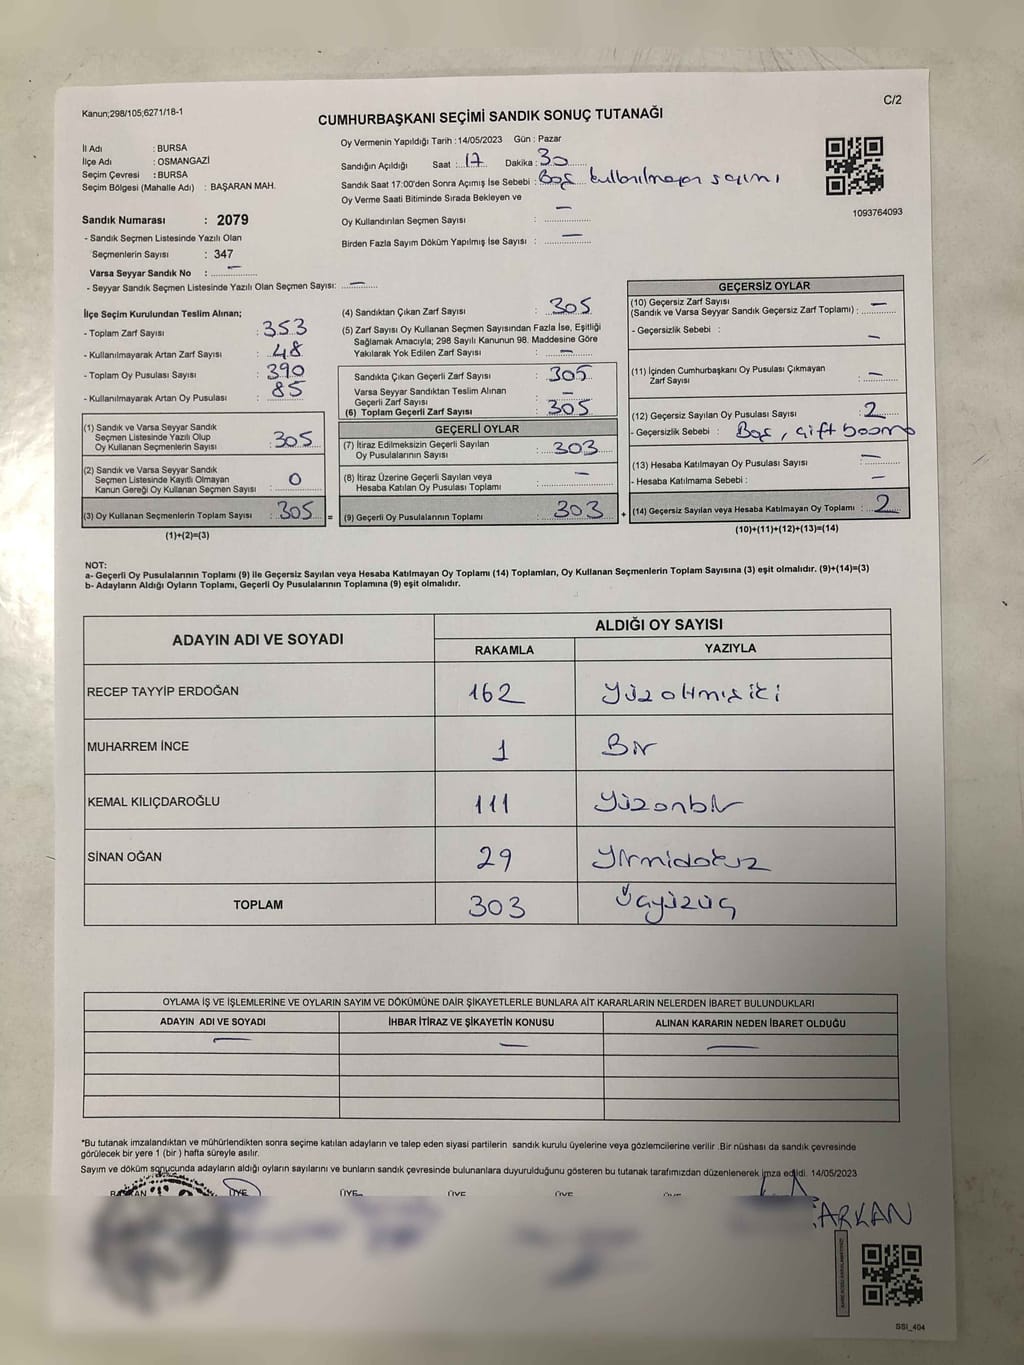 Kanun;298/105;6271/18-1
C/2
CUMHURBAŞKANI SEÇİMİ SANDIK SONUÇ TUTANAĞI
İl Adı : BURSA
İlçe Adı : OSMANGAZİ
Seçim Çevresi : BURSA
Seçim Bölgesi (Mahalle Adı) : BAŞARAN MAH.
Oy Vermenin Yapıldığı Tarih :14/05/2023 Gün : Pazar
Sandığın Açıldığı Saat : 17 Dakika : 30
Sandık Saat 17:00'den Sonra Açımış İse Sebebi : Boş kullanılmayan sayımı
Oy Verme Saati Bitiminde Sırada Bekleyen ve
Oy Kullandırılan Seçmen Sayısı : —
Birden Fazla Sayım Döküm Yapılmış İse Sayısı : —
1093764093
Sandık Numarası : 2079
- Sandık Seçmen Listesinde Yazılı Olan
Seçmenlerin Sayısı : 347
Varsa Seyyar Sandık No : —
- Seyyar Sandık Seçmen Listesinde Yazılı Olan Seçmen Sayısı: —
İlçe Seçim Kurulundan Teslim Alınan;
- Toplam Zarf Sayısı : 353
- Kullanılmayarak Artan Zarf Sayısı : 48
- Toplam Oy Pusulası Sayısı : 390
- Kullanılmayarak Artan Oy Pusulası : 85
(1) Sandık ve Varsa Seyyar Sandık
Seçmen Listesinde Yazılı Olup
Oy Kullanan Seçmenlerin Sayısı : 305
(2) Sandık ve Varsa Seyyar Sandık
Seçmen Listesinde Kayıtlı Olmayan
Kanun Gereği Oy Kullanan Seçmen Sayısı : 0
(3) Oy Kullanan Seçmenlerin Toplam Sayısı : 305 =
(1)+(2)=(3)
(4) Sandıktan Çıkan Zarf Sayısı : 305
(5) Zarf Sayısı Oy Kullanan Seçmen Sayısından Fazla İse, Eşitliği
Sağlamak Amacıyla; 298 Sayılı Kanunun 98. Maddesine Göre
Yakılarak Yok Edilen Zarf Sayısı : —
Sandıkta Çıkan Geçerli Zarf Sayısı : 305
Varsa Seyyar Sandıktan Teslim Alınan
Geçerli Zarf Sayısı : —
(6) Toplam Geçerli Zarf Sayısı : 305
GEÇERLİ OYLAR
(7) İtiraz Edilmeksizin Geçerli Sayılan
Oy Pusulalarının Sayısı : 303
(8) İtiraz Üzerine Geçerli Sayılan veya
Hesaba Katılan Oy Pusulası Toplamı : —
(9) Geçerli Oy Pusulalarının Toplamı : 303 +
GEÇERSİZ OYLAR
(10) Geçersiz Zarf Sayısı
(Sandık ve Varsa Seyyar Sandık Geçersiz Zarf Toplamı) : —
- Geçersizlik Sebebi : —
(11) İçinden Cumhurbaşkanı Oy Pusulası Çıkmayan
Zarf Sayısı : —
(12) Geçersiz Sayılan Oy Pusulası Sayısı : 2
- Geçersizlik Sebebi : Boş, çift basma
(13) Hesaba Katılmayan Oy Pusulası Sayısı : —
- Hesaba Katılmama Sebebi : —
(14) Geçersiz Sayılan veya Hesaba Katılmayan Oy Toplamı : 2
(10)+(11)+(12)+(13)=(14)
NOT:
a- Geçerli Oy Pusulalarının Toplamı (9) ile Geçersiz Sayılan veya Hesaba Katılmayan Oy Toplamı (14) Toplamları, Oy Kullanan Seçmenlerin Toplam Sayısına (3) eşit olmalıdır. (9)+(14)=(3)
b- Adayların Aldığı Oyların Toplamı, Geçerli Oy Pusulalarının Toplamına (9) eşit olmalıdır.
ADAYIN ADI VE SOYADI ALDIĞI OY SAYISI
RAKAMLA YAZIYLA
RECEP TAYYİP ERDOĞAN 162 Yüzaltmışiki
MUHARREM İNCE 1 Bir
KEMAL KILIÇDAROĞLU 111 Yüzonbir
SİNAN OĞAN 29 Yirmidokuz
TOPLAM 303 Üçyüzüç
OYLAMA İŞ VE İŞLEMLERİNE VE OYLARIN SAYIM VE DÖKÜMÜNE DAİR ŞİKAYETLERLE BUNLARA AİT KARARLARIN NELERDEN İBARET BULUNDUKLARI
ADAYIN ADI VE SOYADI İHBAR İTİRAZ VE ŞİKAYETİN KONUSU ALINAN KARARIN NEDEN İBARET OLDUĞU
— — —
*Bu tutanak imzalandıktan ve mühürlendikten sonra seçime katılan adayların ve talep eden siyasi partilerin sandık kurulu üyelerine veya gözlemcilerine verilir .Bir nüshası da sandık çevresinde
görülecek bir yere 1 (bir ) hafta süreyle asılır.
Sayım ve döküm sonucunda adayların aldığı oyların sayılarını ve bunların sandık çevresinde bulunanlara duyurulduğunu gösteren bu tutanak tarafımızdan düzenlenerek imza edildi. 14/05/2023
BAŞKAN ÜYE ÜYE ÜYE ÜYE
ARKAN
SSİ_404